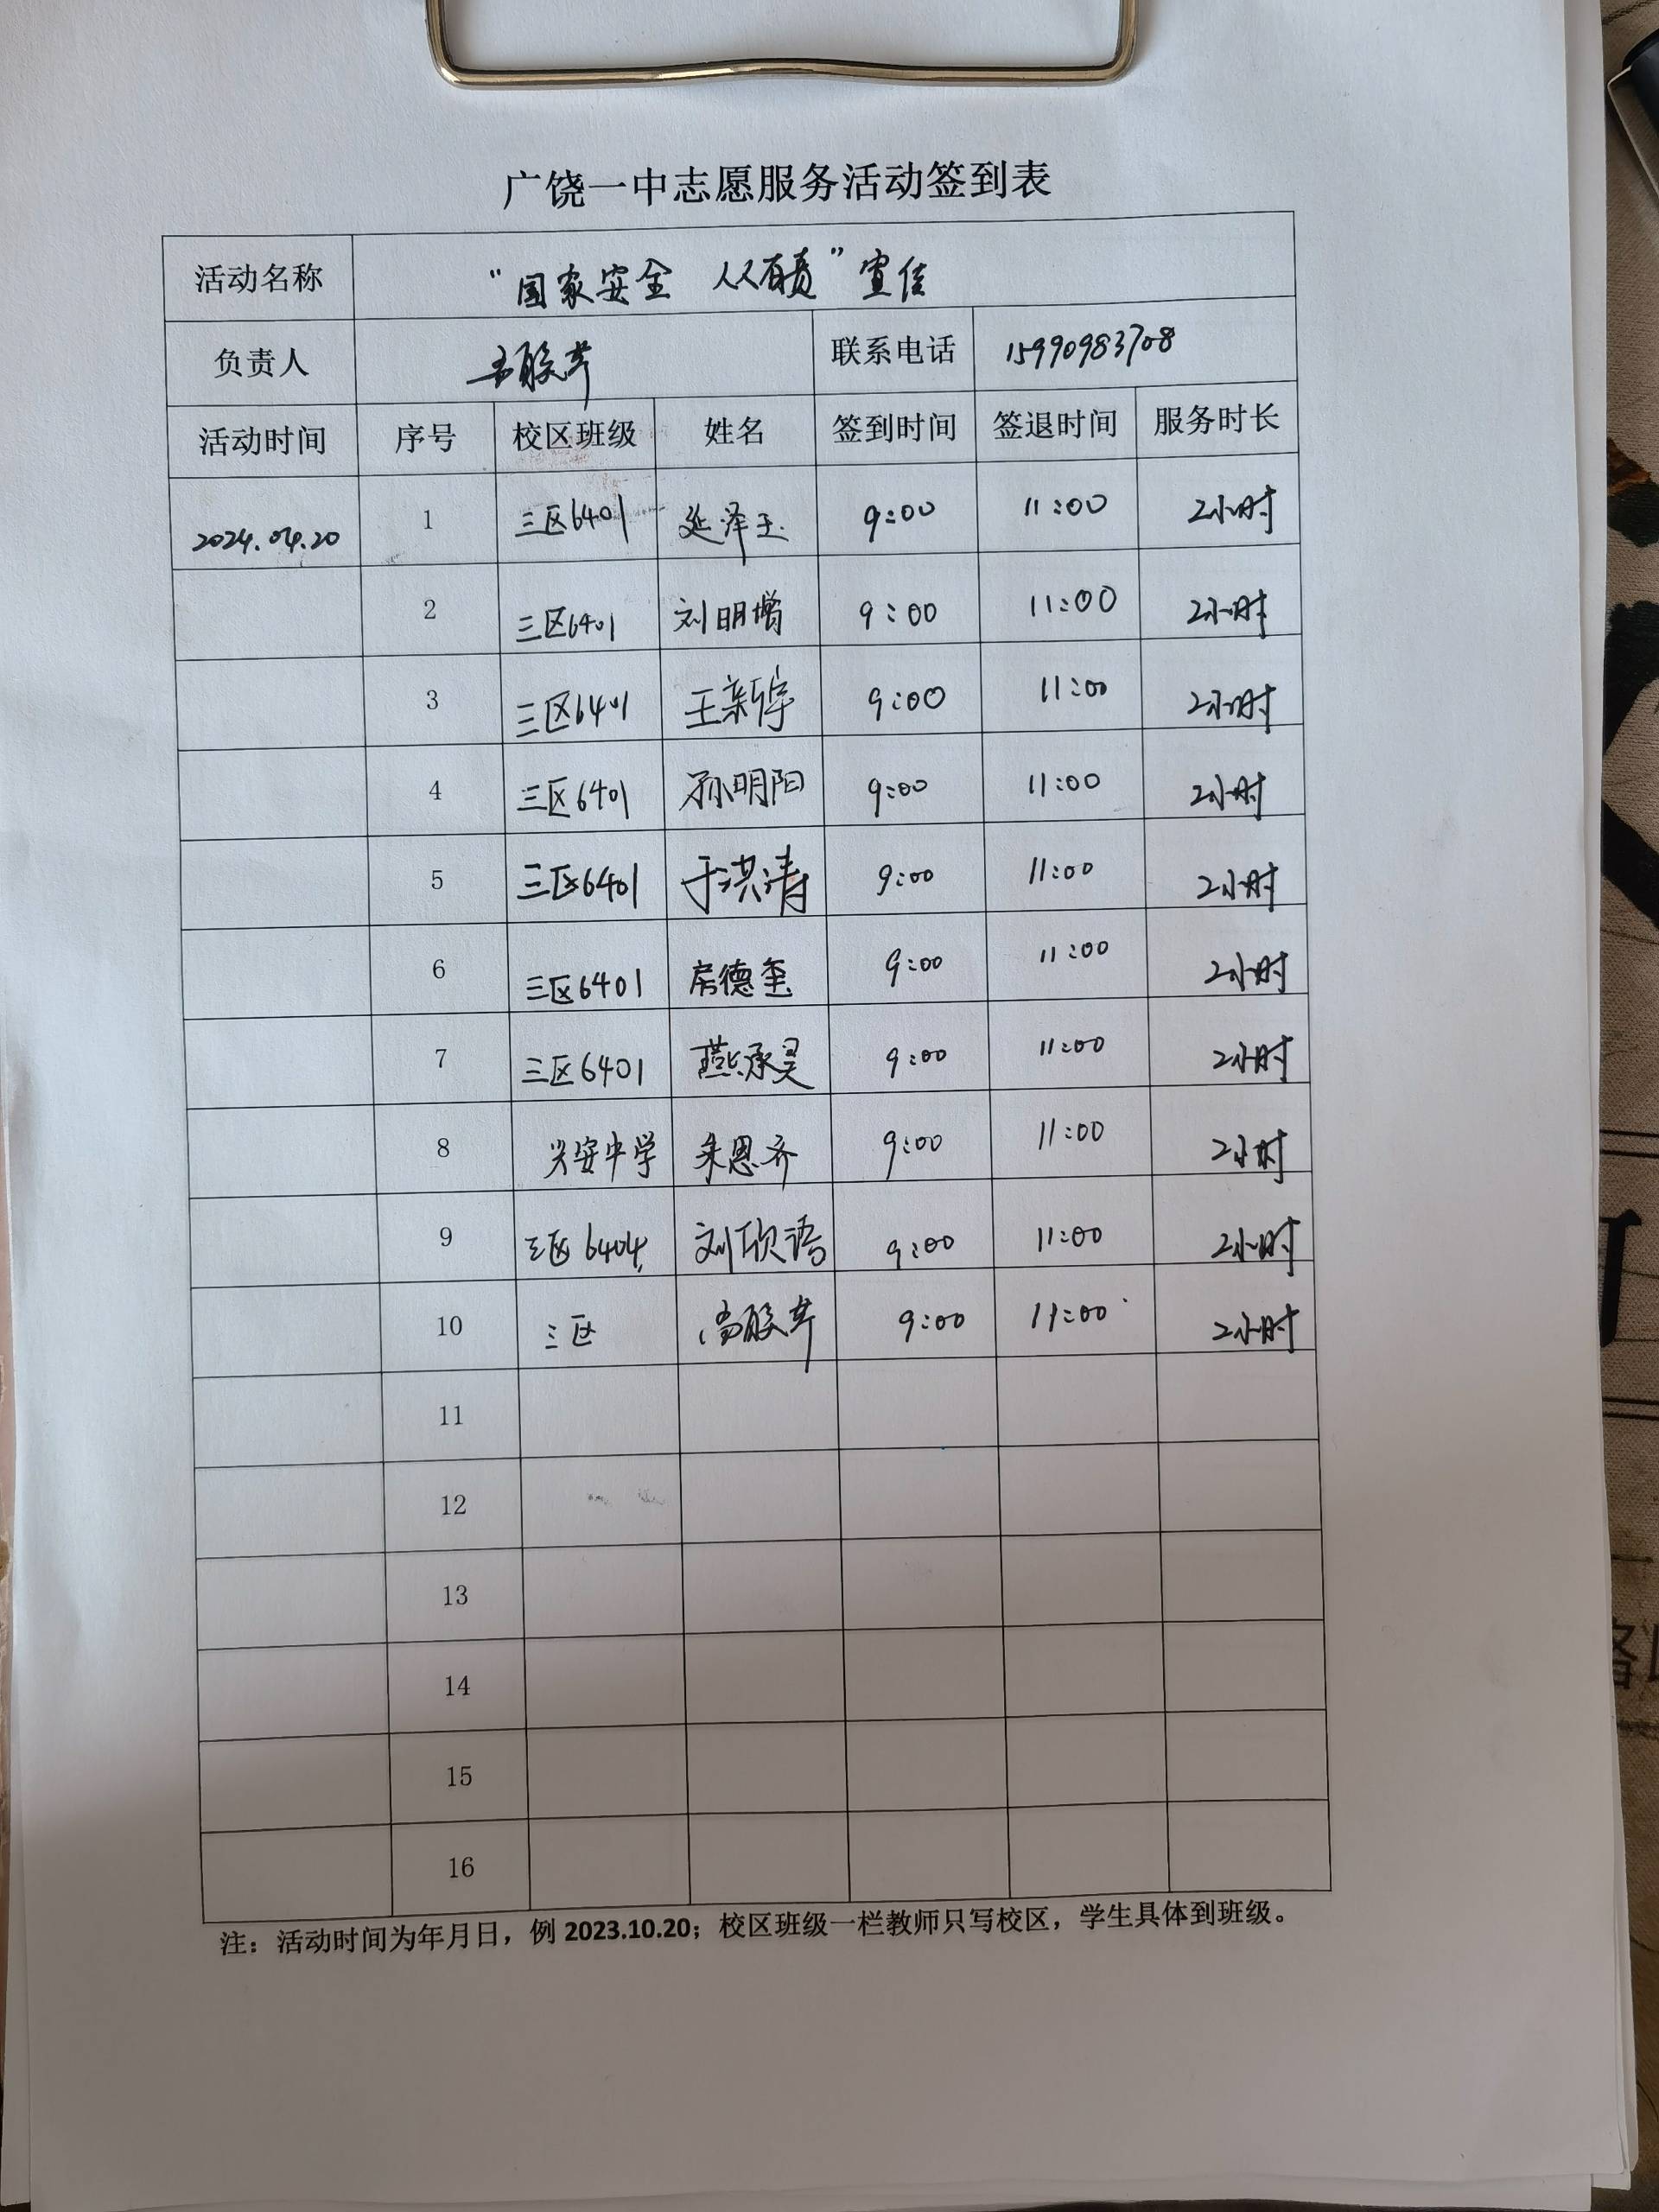 广饶一中志愿服务活动签到表
活动名称 “国家安全 人人有责”宣传
负责人 联系电话 15990983708
活动时间 序号 校区班级 姓名 签到时间 签退时间 服务时长
2024.04.20 1 三区6401 延泽玉 9:00 11:00 2小时
2 三区6401 刘明增 9:00 11:00 2小时
3 三区6401 王新宇 9:00 11:00 2小时
4 三区6401 孙明阳 9:00 11:00 2小时
5 三区6401 于洪涛 9:00 11:00 2小时
6 三区6401 房德玺 9:00 11:00 2小时
7 三区6401 燕承昊 9:00 11:00 2小时
8 兴安中学 朱恩齐 9:00 11:00 2小时
9 三区6404 刘欣语 9:00 11:00 2小时
10 三区 9:00 11:00 2小时
11
12
13
14
15
16
注：活动时间为年月日，例 2023.10.20；校区班级一栏教师只写校区，学生具体到班级。